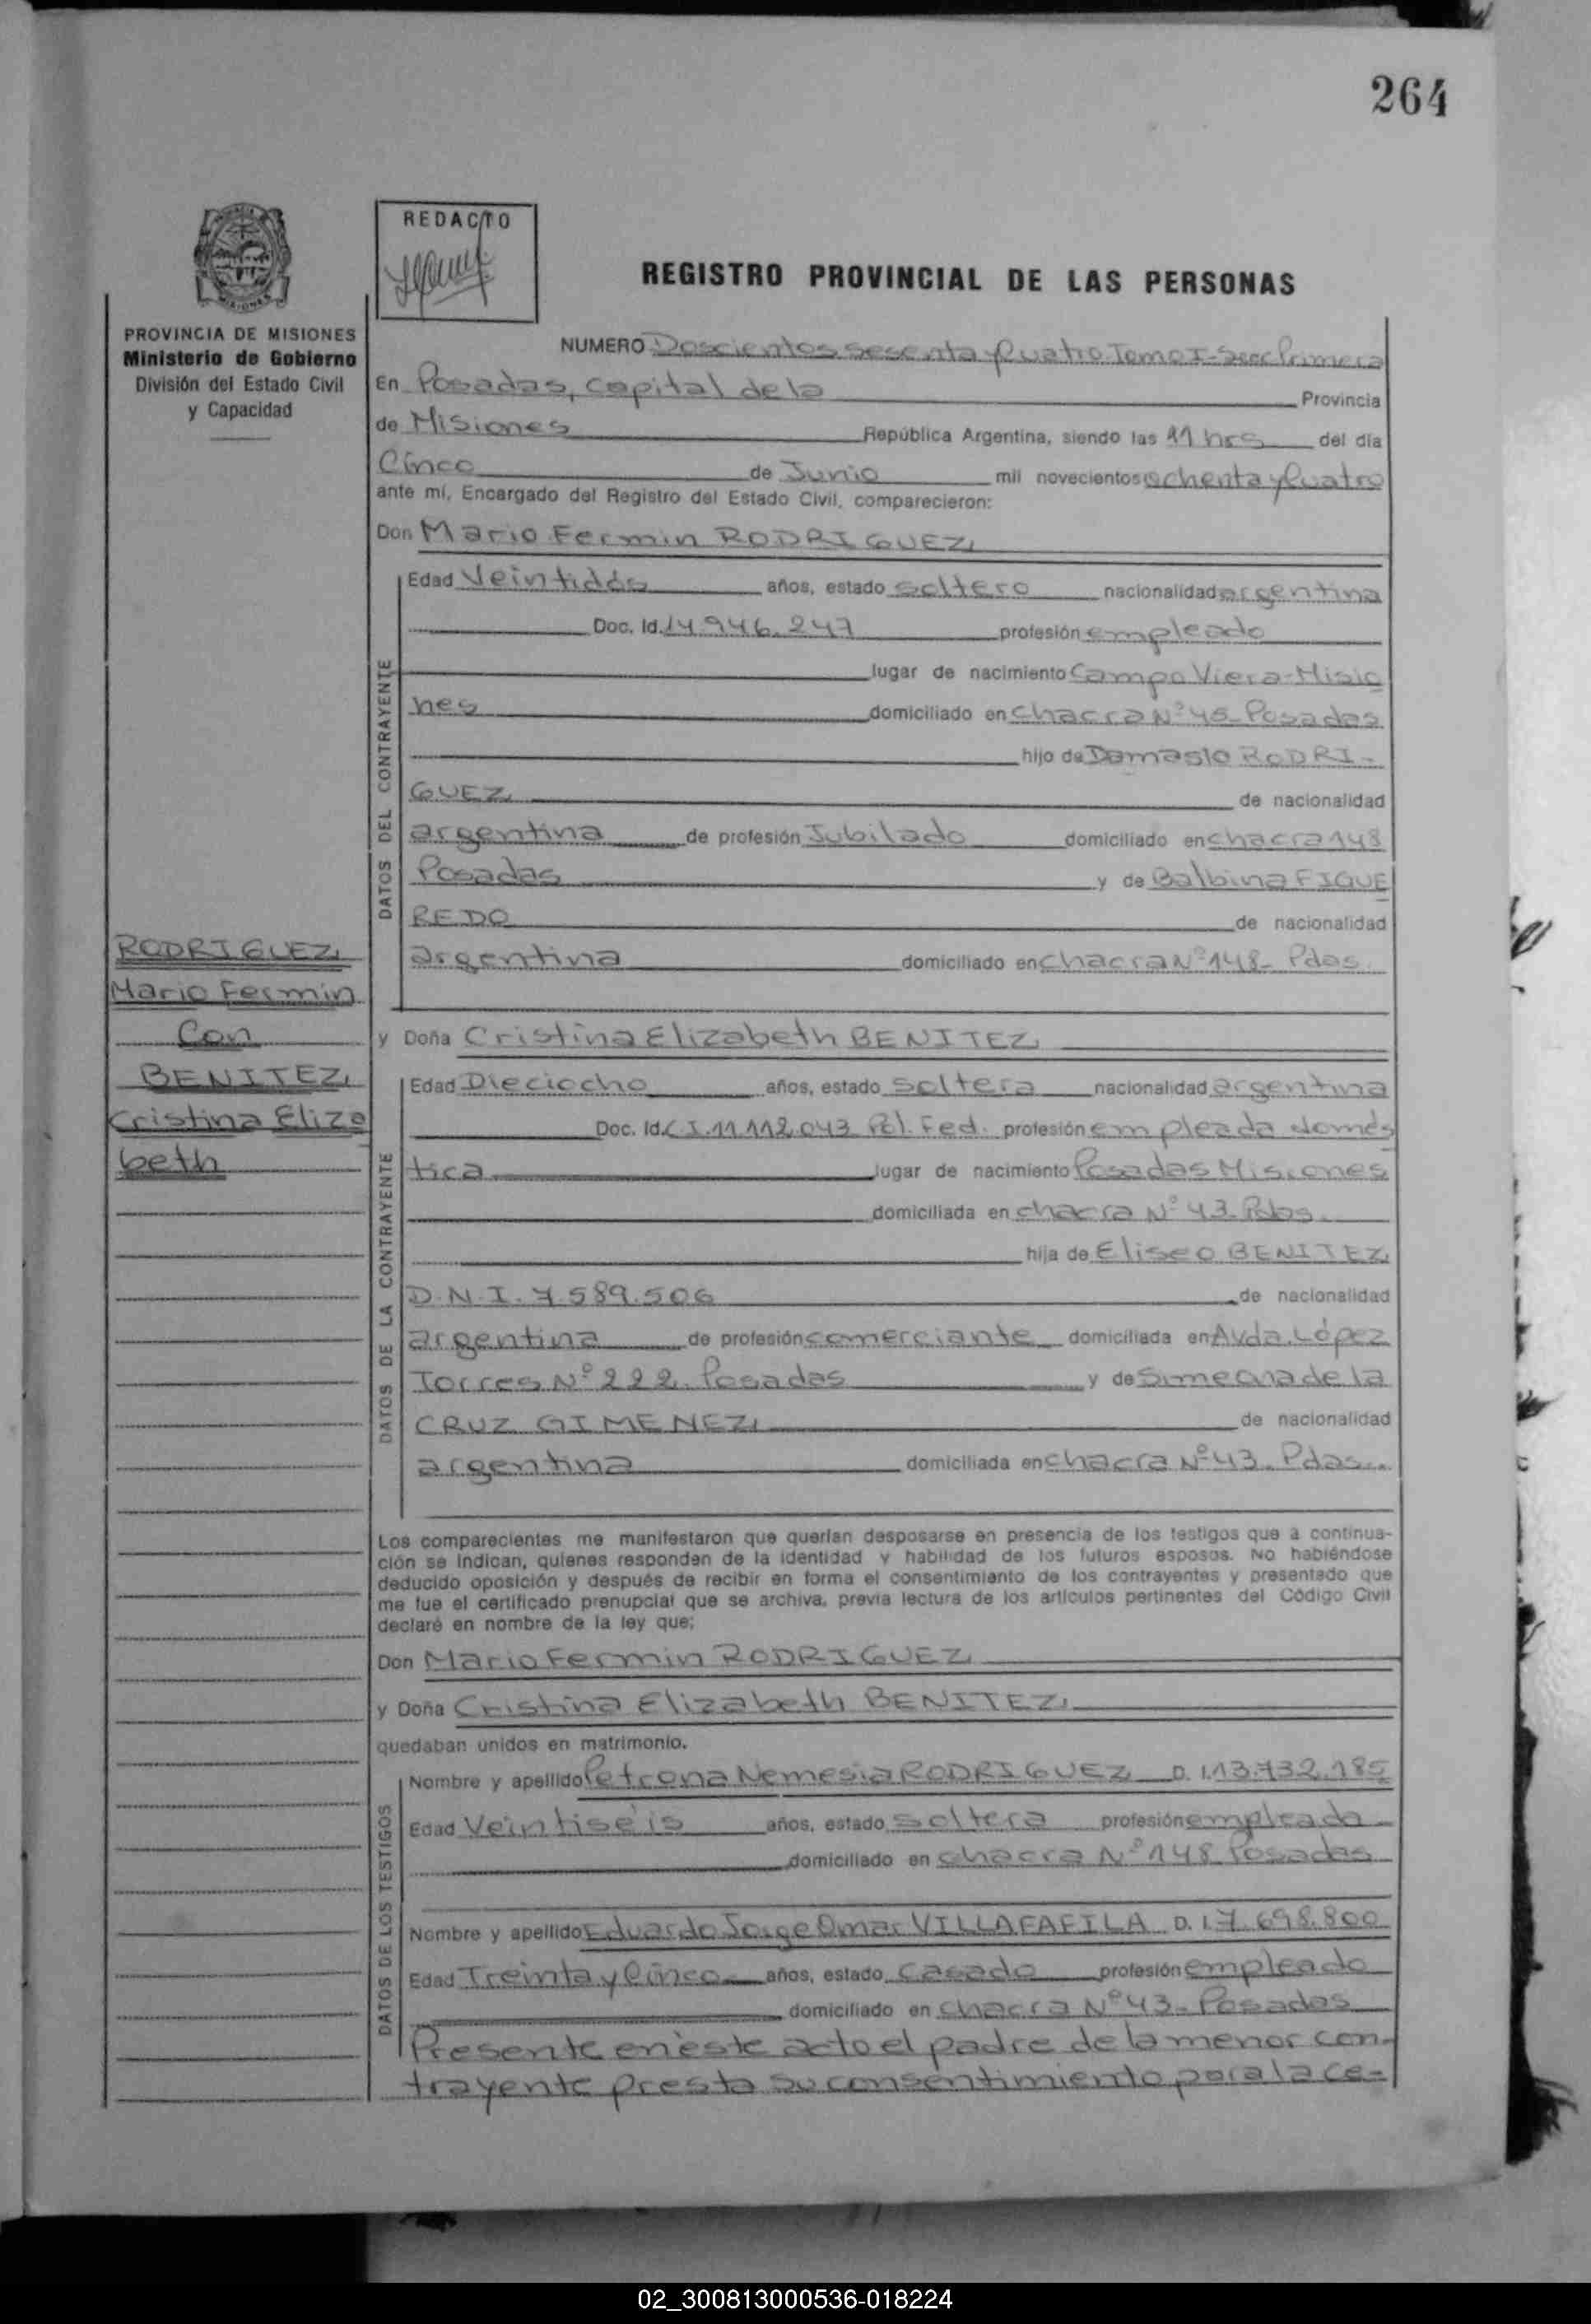 264
REDACTO
REGISTRO PROVINCIAL DE LAS PERSONAS
PROVINCIA DE MISIONES
Ministerio de Gobierno
División del Estado Civil
y Capacidad
NUMERO Doscientos sesenta y Cuatro. Tomo I - Secc Primera
En Posadas, capital de la Provincia
de Misiones República Argentina, siendo las 11 hrs del día
Cinco de Junio mil novecientos ochenta y Cuatro
ante mí, Encargado del Registro del Estado Civil, comparecieron:
Don Mario Fermin RODRIGUEZ
DATOS DEL CONTRAYENTE
Edad Veintidós años, estado soltero nacionalidad argentina
Doc. Id. 14.946.247 profesión empleado
lugar de nacimiento Campo Viera-Misio
nes domiciliado en chacra Nº 45- Posadas
hijo de Damasio RODRI-
GUEZ de nacionalidad
argentina de profesión Jubilado domiciliado en chacra 148
Posadas y de Balbina FIGUE
REDO de nacionalidad
argentina domiciliado en chacra Nº 148- Pdas.
RODRIGUEZ
Mario Fermin
Con
BENITEZ
Cristina Eliza
beth
y Doña Cristina Elizabeth BENITEZ
DATOS DE LA CONTRAYENTE
Edad Dieciocho años, estado soltera nacionalidad argentina
Doc. Id. C.I. 11.112.043 Pol. Fed. profesión empleada domés
tica lugar de nacimiento Posadas Misiones
domiciliada en chacra Nº 43. Pdas.
hija de Eliseo BENITEZ
D.N.I. 7.589.506 de nacionalidad
argentina de profesión comerciante domiciliada en Avda. López
Torres Nº 222. Posadas y de Simeona de la
CRUZ GIMENEZ de nacionalidad
argentina domiciliada en chacra Nº 43. Pdas..
Los comparecientes me manifestaron que querían desposarse en presencia de los testigos que a continua-
ción se indican, quienes responden de la identidad y habilidad de los futuros esposos. No habiéndose
deducido oposición y después de recibir en forma el consentimiento de los contrayentes y presentado que
me fue el certificado prenupcial que se archiva, previa lectura de los artículos pertinentes del Código Civil
declaré en nombre de la ley que:
Don Mario Fermin RODRIGUEZ
y Doña Cristina Elizabeth BENITEZ
quedaban unidos en matrimonio.
DATOS DE LOS TESTIGOS
Nombre y apellido Petrona Nemesia RODRIGUEZ D.I. 13.732.185
Edad Veintiséis años, estado soltera profesión empleada
domiciliado en chacra Nº 148 Posadas
Nombre y apellido Eduardo Jorge Omar VILLAFAFILA D.I. 7.698.800
Edad Treinta y Cinco años, estado casado profesión empleado
domiciliado en chacra Nº 43- Posadas
Presente en éste acto el padre de la menor con-
trayente presta su consentimiento para la ce-
02_300813000536-018224